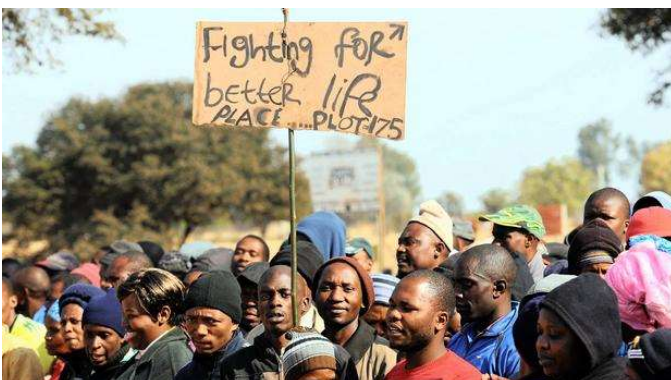 Fighting for
better life
PLACE....PLOT-175